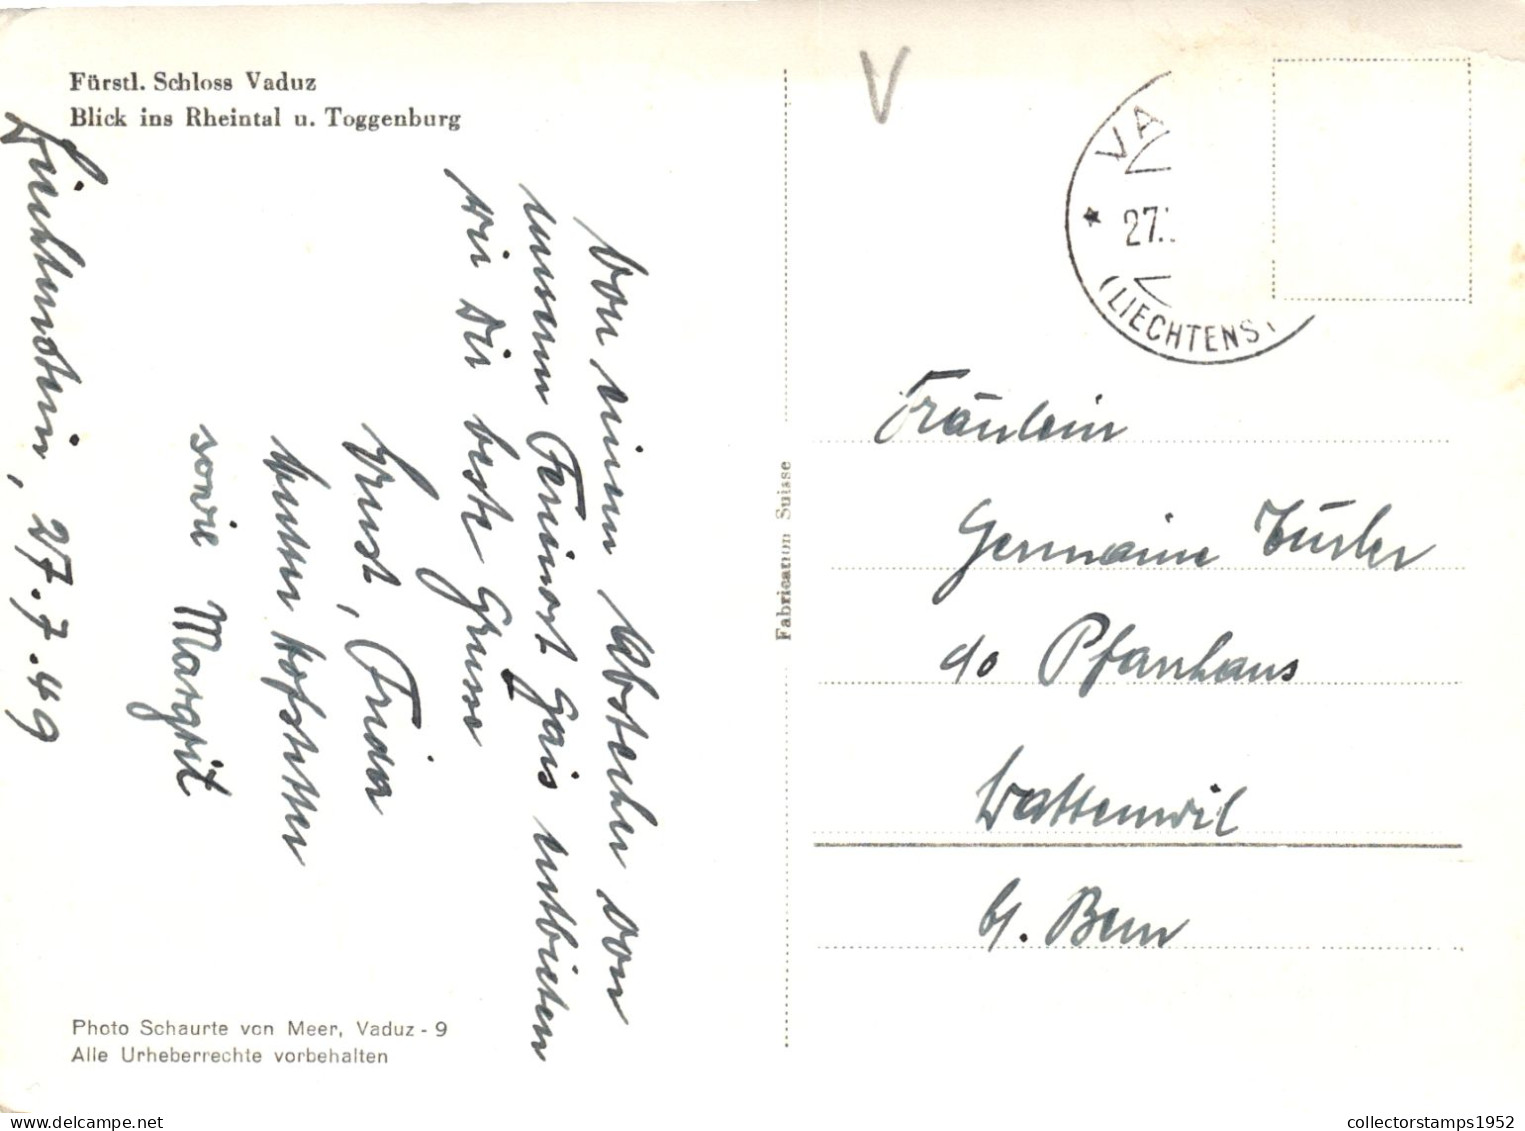 Fürstl. Schloss Vaduz
Blick ins Rheintal u. Toggenburg
Liechtenstein, 27.7.49
Von einem Abstecher von
unserem Ferienort Gais entbieten
wir Dir beste Grüsse
Ernst, Frieda
Hofstetter
sowie Margrit
Photo Schaurte von Meer, Vaduz - 9
Alle Urheberrechte vorbehalten
Fabrication Suisse
V
VA
27.
(LIECHTENST
Fräulein
Germaine Türler
c/o Pfarrhaus
Wattenwil
b/. Bern
collectorstamps1952